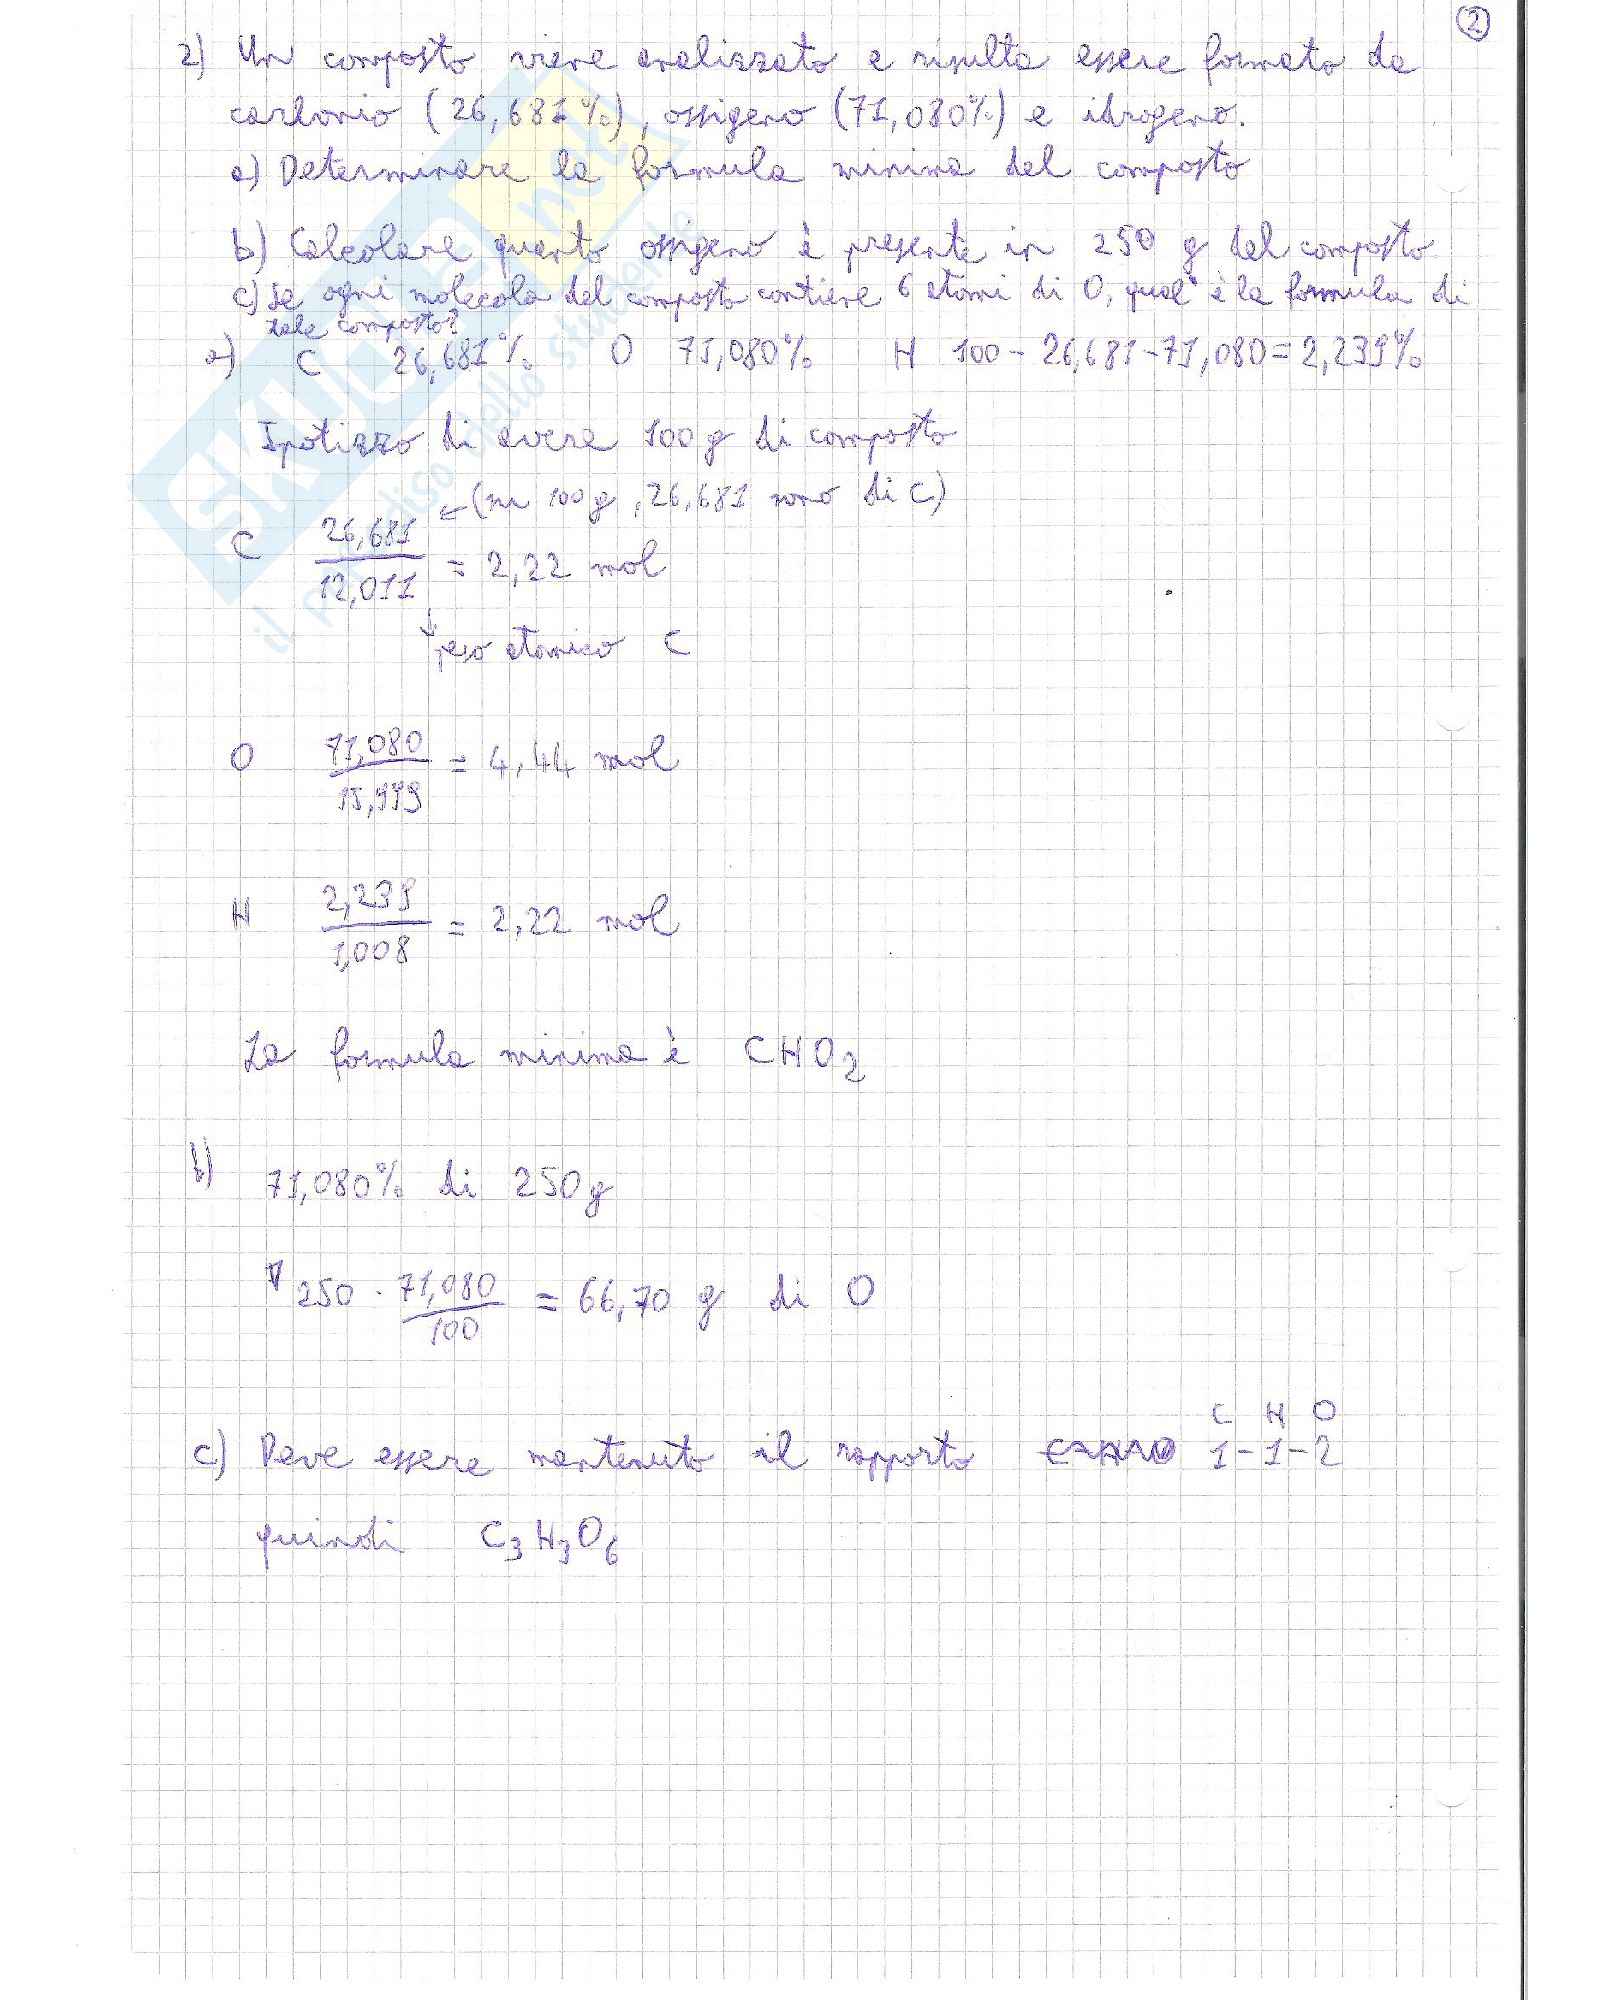 2
2) Un composto viene analizzato e risulta essere formato da
carbonio (26,681%), ossigeno (71,080%) e idrogeno.
a) Determinare la formula minima del composto
b) Calcolare quanto ossigeno è presente in 250 g del composto
c) Se ogni molecola del composto contiene 6 atomi di O, qual è la formula di
tale composto?
a) C 26,681% O 71,080% H 100 - 26,681 - 71,080 = 2,239%
Ipotizzo di avere 100 g di composto
← (su 100 g, 26,681 sono di C)
C 26,681/12,011 = 2,22 mol
↓ peso atomico C
O 71,080/15,999 = 4,44 mol
H 2,239/1,008 = 2,22 mol
La formula minima è CHO₂
b) 71,080% di 250 g
250 · 71,080/100 = 66,70 g di O
C H O
c) Deve essere mantenuto il rapporto 1-1-2
quindi C₃H₃O₆
SKUOLA.net
il paradiso dello studente